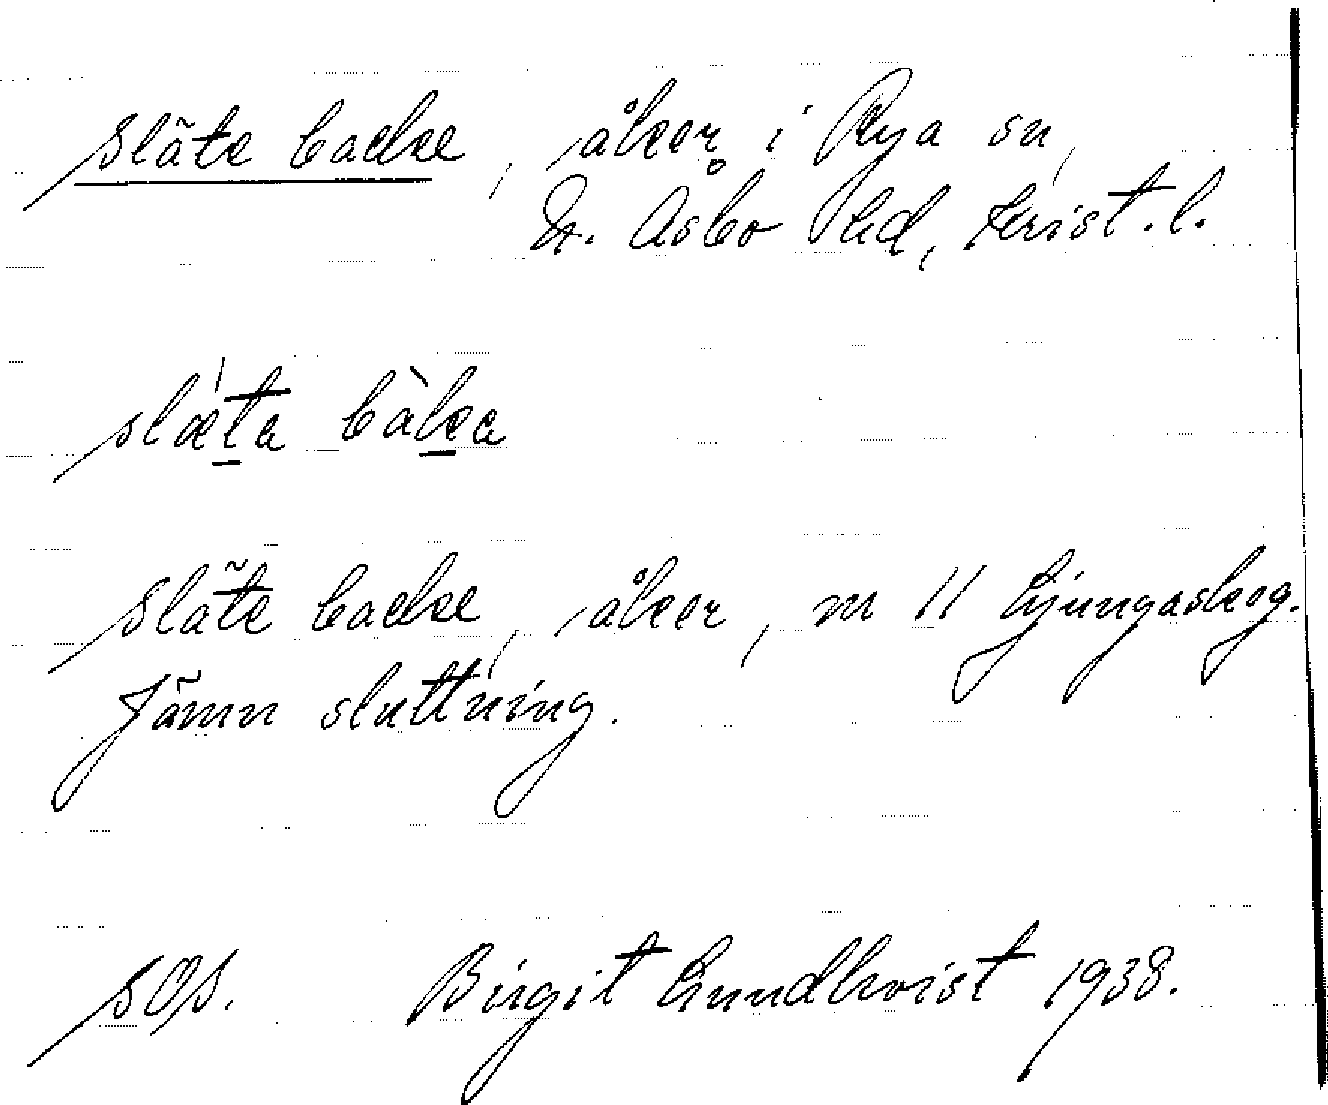 Släte backe, åker i Rya sn,
N. Åsbo hd, Krist. l.
slæ̀ta bàka
Släte backe, åker, nr 11 Ljungaskog.
Jämn sluttning.
SOS. Birgit Lundkvist 1938.